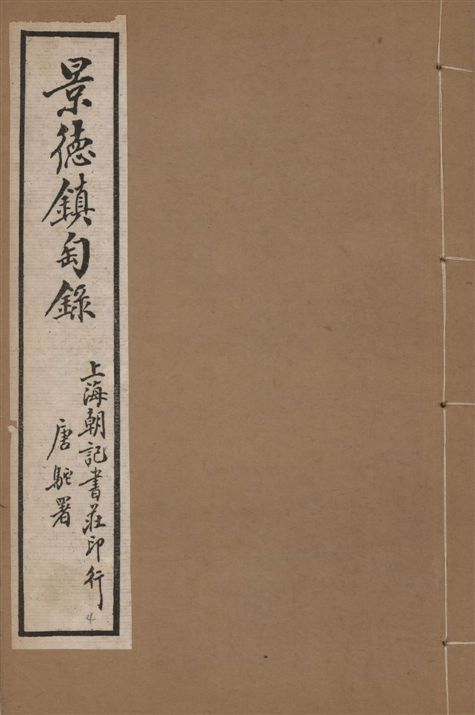 景德鎮匋錄
上海朝記書莊印行
唐駝署
4